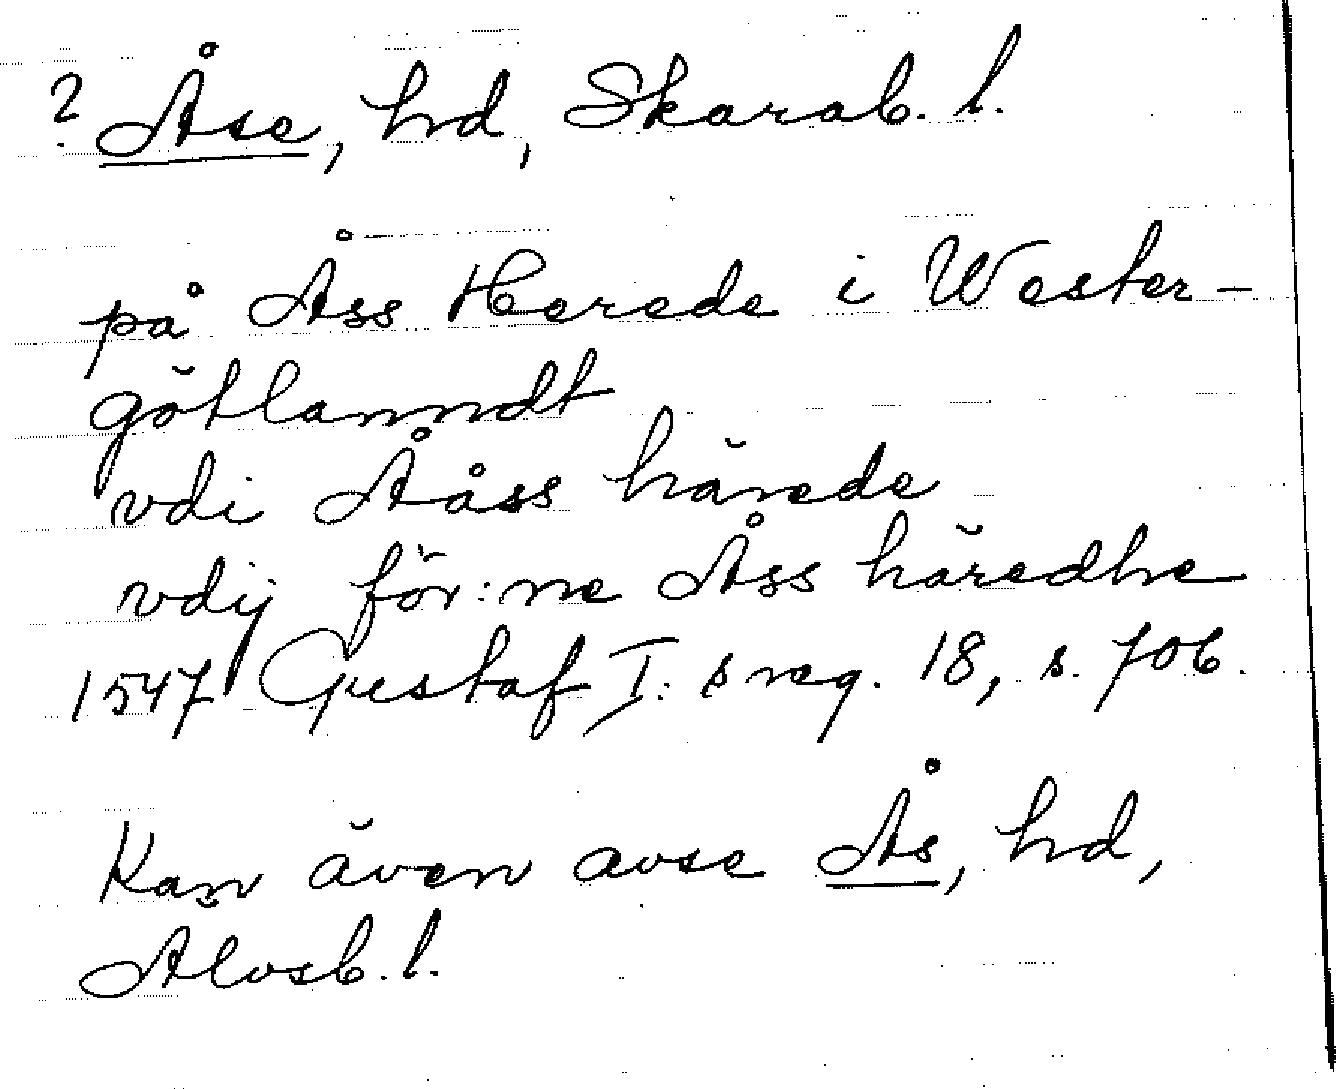 ? Åse, hd, Skarab. l.
på Åss Herede i Wester-
götlanndt
vdi Ååss härede
vdij för:ne Åss häredhe
1547 Gustaf I:s reg. 18, s. 706.
Kan även avse Ås, hd,
Älvsb. l.